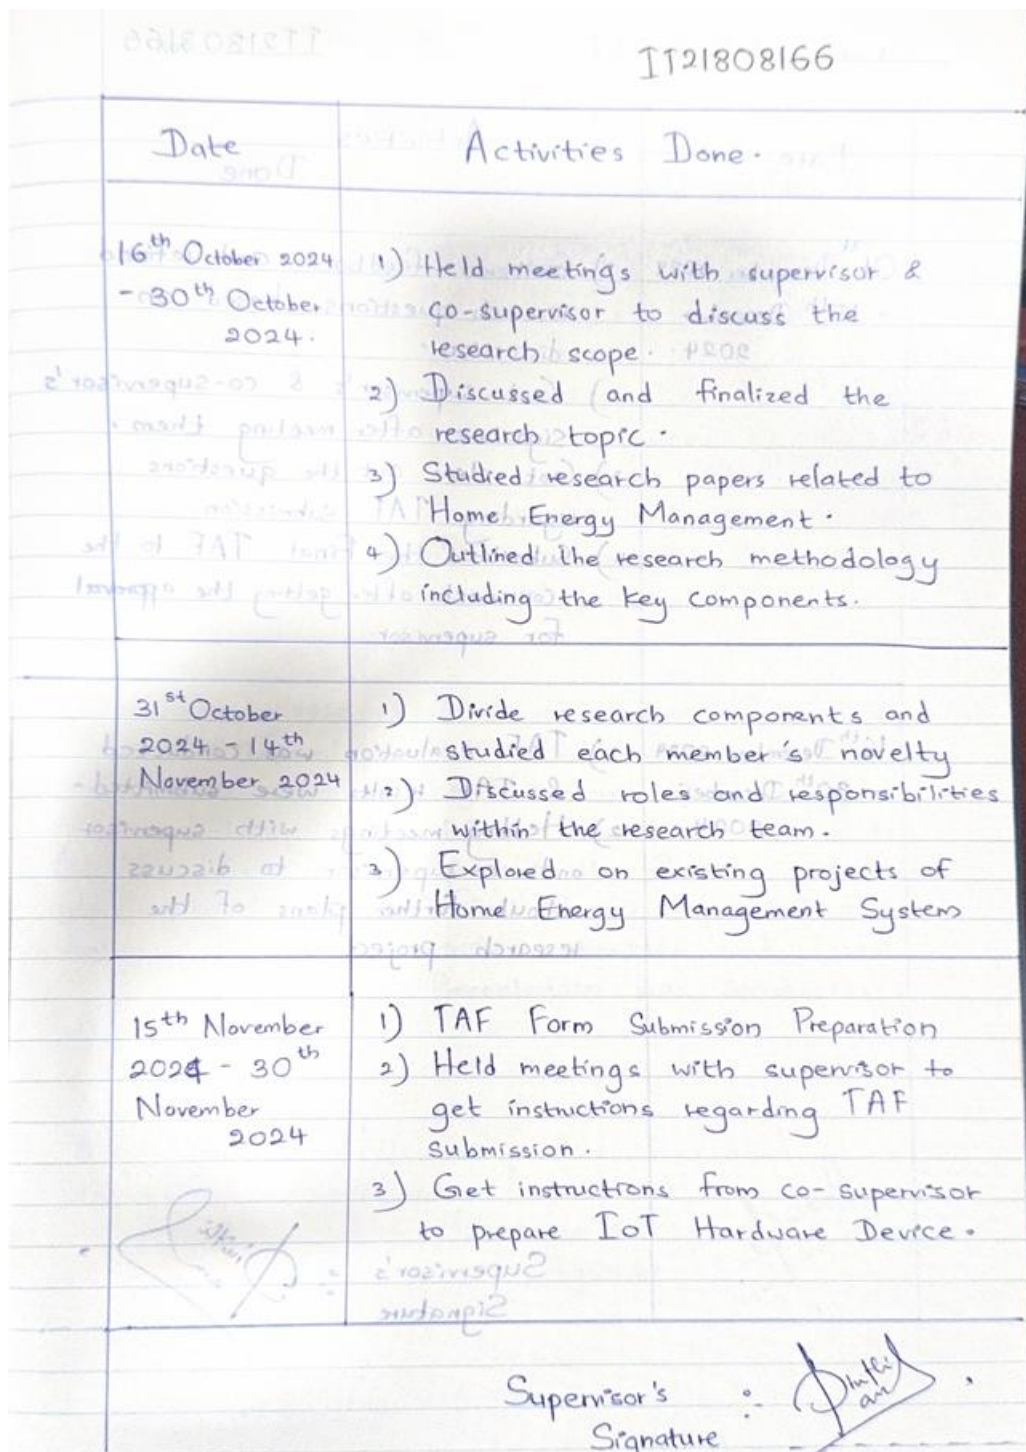 IT21808166
Date Activities Done.
16th October 2024 1) Held meetings with supervisor &
- 30th October co-supervisor to discuss the
2024. research scope.
2) Discussed and finalized the
research topic.
3) Studied research papers related to
Home Energy Management.
4) Outlined the research methodology
including the key components.
31st October 1) Divide research components and
2024 - 14th studied each member's novelty
November 2024 2) Discussed roles and responsibilities
within the research team.
3) Explored on existing projects of
Home Energy Management System
15th November 1) TAF Form Submission Preparation
2024 - 30th 2) Held meetings with supervisor to
November get instructions regarding TAF
2024 submission.
3) Get instructions from co-supervisor
to prepare IoT Hardware Device.
Supervisor's :-
Signature